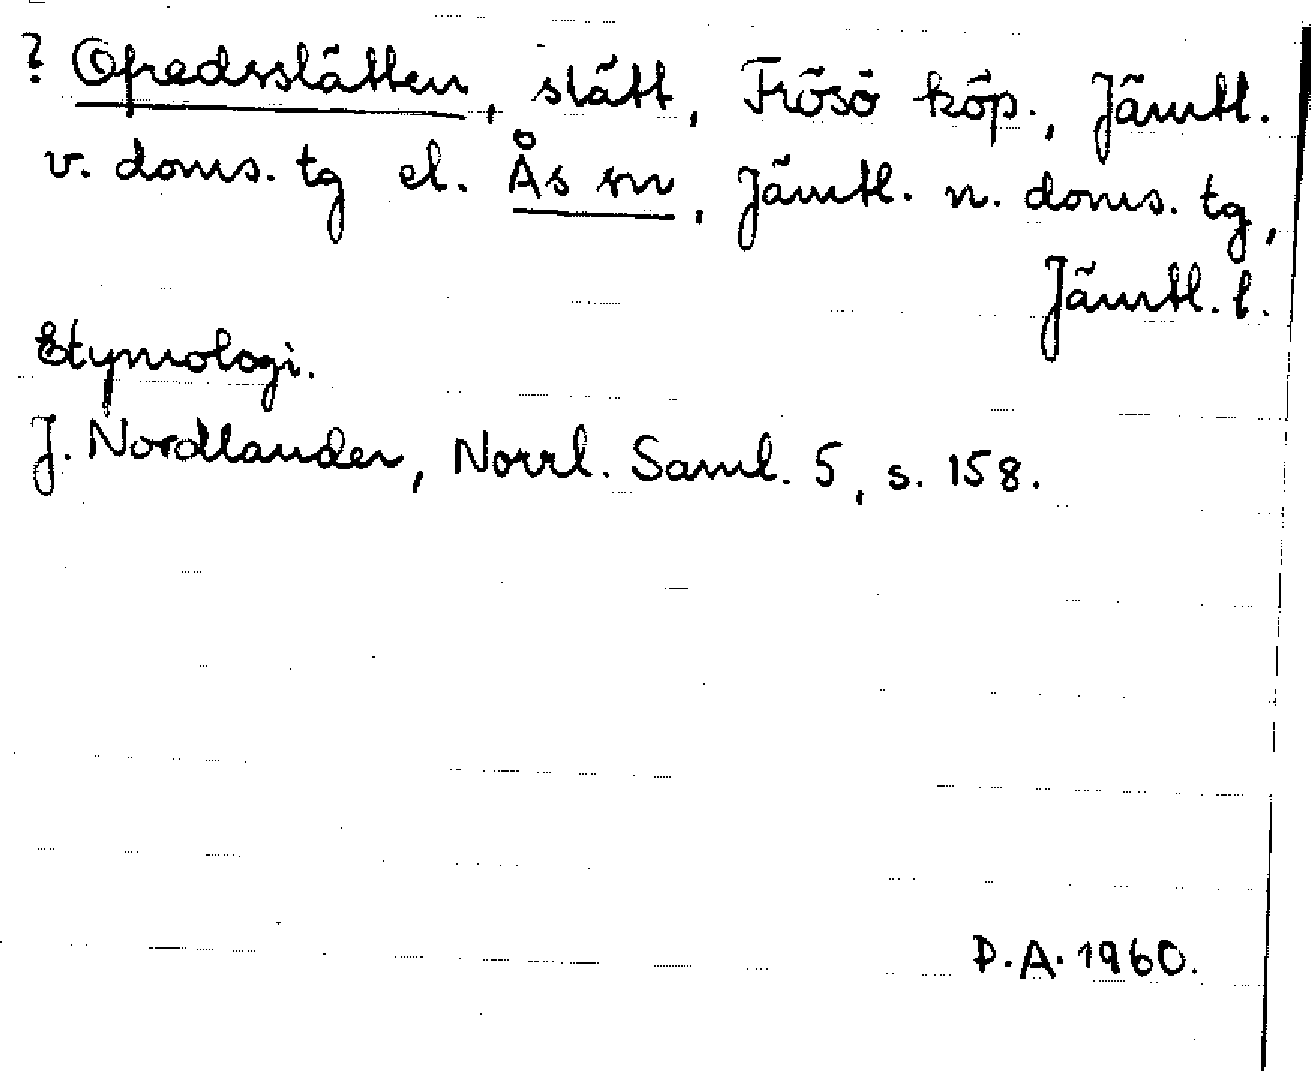 ? Ofredsslätten, slätt, Frösö köp., Jämtl.
v. doms. tg el. Ås sn, Jämtl. n. doms. tg,
Jämtl. l.
Etymologi.
J. Nordlander, Norrl. Saml. 5, s. 158.
D.A. 1960.